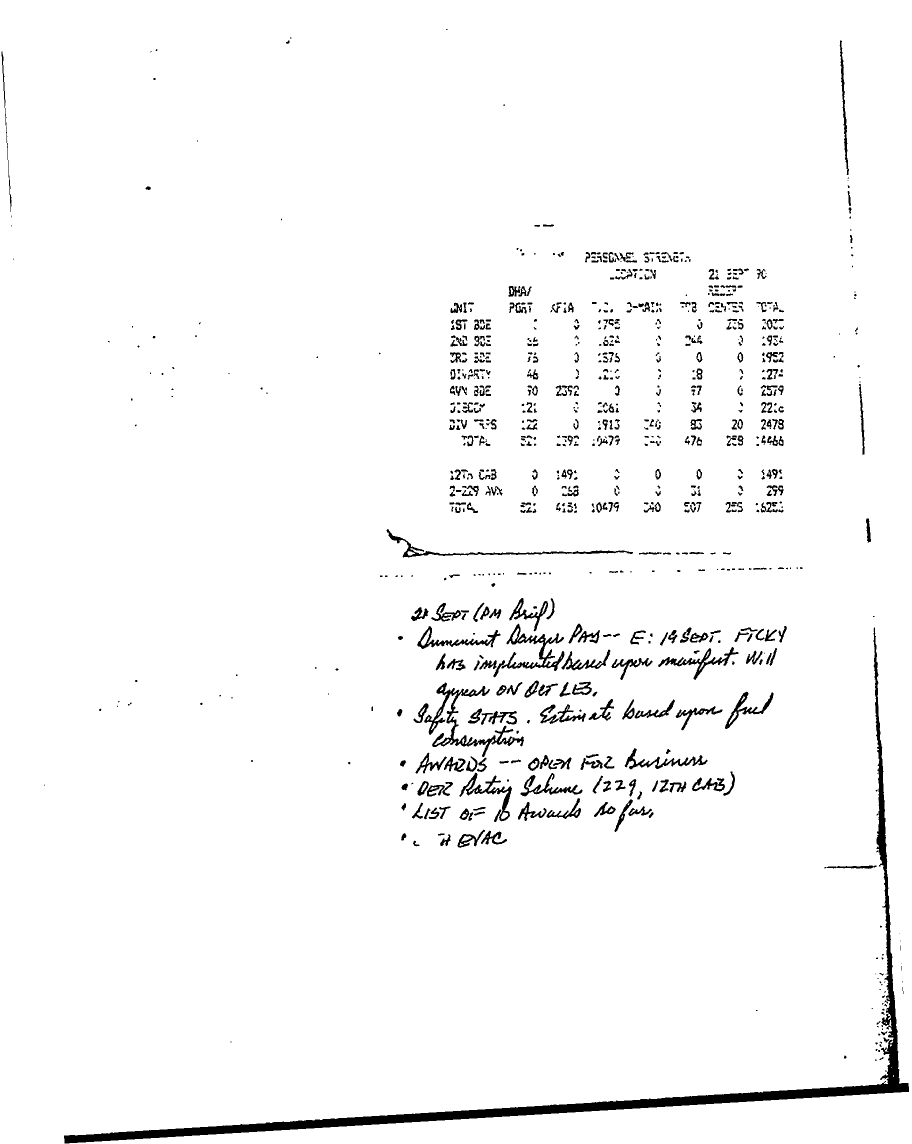 PERSONNEL STRENGTH
LOCATION 21 SEPT 90
DHA/
UNIT PORT KFIA D-MAIN CENTER TOTAL
1ST BDE 0 1795 0 0
2ND BDE 0 1624 0 244 0 1934
3RD BDE 76 0 1876 0 0 0 1952
DIVARTY 46 0 1210 0 18 0 1274
AVN BDE 90 2392 0 0 97 0 2579
DISCOM 121 0 2061 0 34 0 2216
DIV TRPS 122 0 1913 340 83 20 2478
TOTAL 521 2392 10479 340 476 258 14466
12TH CAB 0 1491 0 0 0 0 1491
2-229 AVN 0 268 0 0 31 0 299
TOTAL 521 4151 10479 340 507
21 SEPT (PM Brief)
• Imminent Danger Pay -- E: 19 SEPT. FTCKY
has implemented based upon manifest. Will
appear ON OCT LES.
• Safety STATS. Estimate based upon fuel
consumption
• AWARDS -- OPEN FOR Business
• OER Rating Scheme (229, 12TH CAB)
• LIST OF 10 Awards so far.
• EVAC